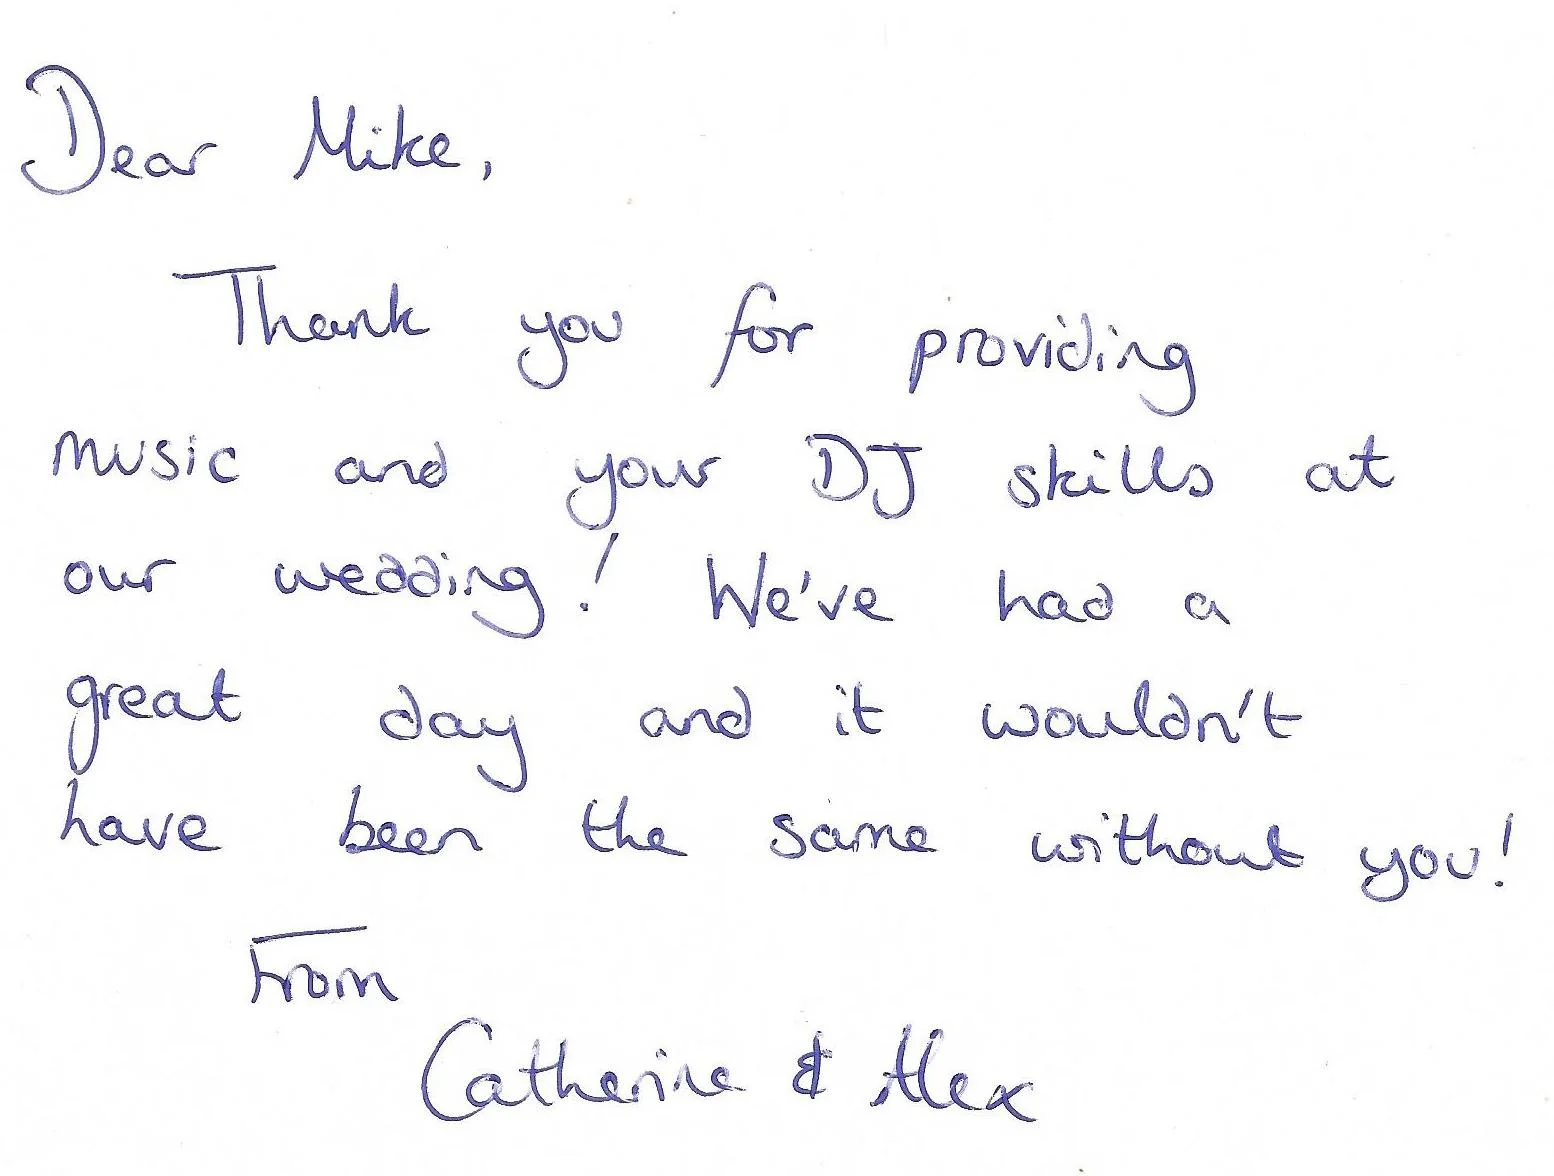 Dear Mike,
Thank you for providing
music and your DJ skills at
our wedding! We've had a
great day and it wouldn't
have been the same without you!
From
Catherine & Alex